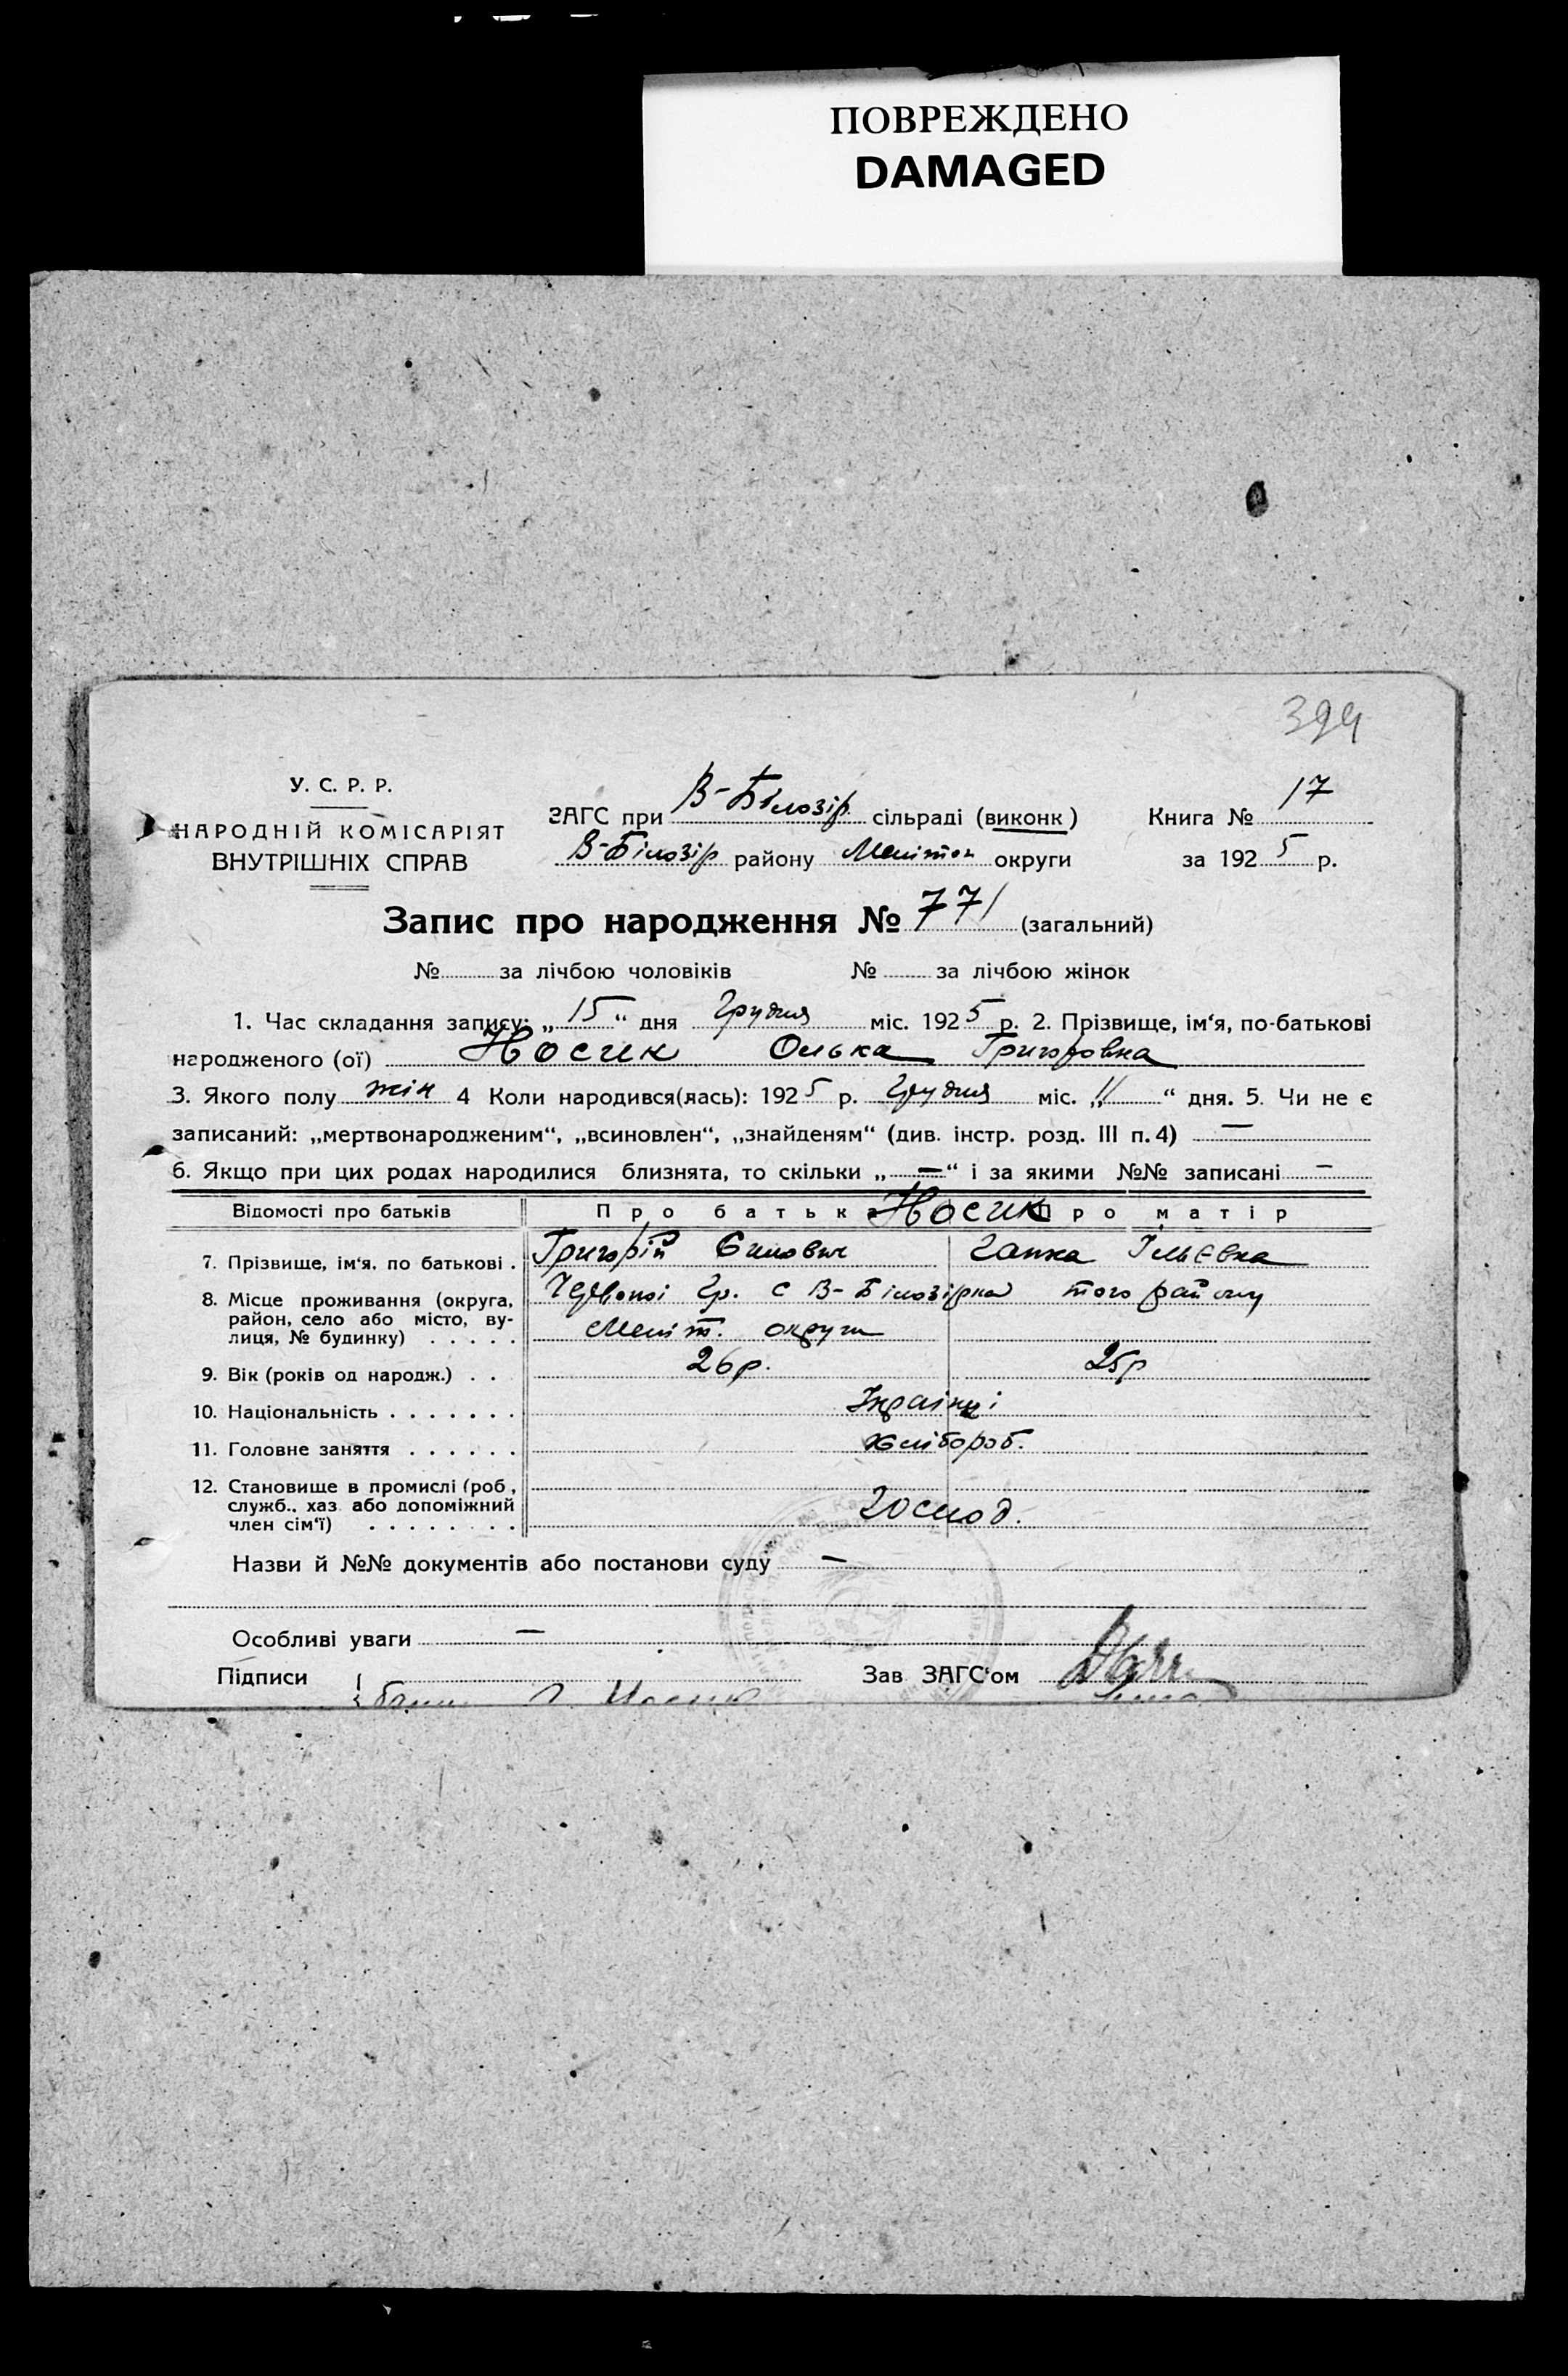 ПОВРЕЖДЕНО
DAMAGED
394
У. С. Р. Р.
НАРОДНІЙ КОМІСАРІЯТ
ВНУТРІШНІХ СПРАВ
ЗАГС при В-Білозір. сільраді (виконк) Книга № 17
В-Білозір району Мелітоп округи за 1925 р.
Запис про народження № 771 (загальний)
№ за лічбою чоловіків № за лічбою жінок
1. Час складання запису: „15“ дня Грудня міс. 1925 р. 2. Прізвище, ім‘я, по-батькові
народженого (ої) Носик Олька Григоровна
3. Якого полу жін 4 Коли народився(лась): 1925 р. Грудня міс. „11“ дня. 5. Чи не є
записаний: „мертвонародженим“, „всиновлен“, „знайденям“ (див. інстр. розд. III п. 4) —
6. Якщо при цих родах народилися близнята, то скільки „—“ і за якими №№ записані —
Відомості про батьків Про батьк Носик Про матір
7. Прізвище, ім‘я, по батькові . Григорій Ганна Ільєвна
8. Місце проживання (округа, район, село або місто, вулиця, № будинку) . . . . . Червоної Гр. с В-Білозірка того району
Меліт. округи
9. Вік (років од народж.) . . 26р. 25р
10. Національність . . . . . . . Українці
11. Головне заняття . . . . . . Хлібороб.
12. Становище в промислі (роб., служб., хаз. або допоміжний член сім‘ї) . . . . . . . . Господ.
Назви й №№ документів або постанови суду —
Особливі уваги —
Підписи Зав ЗАГС‘ом